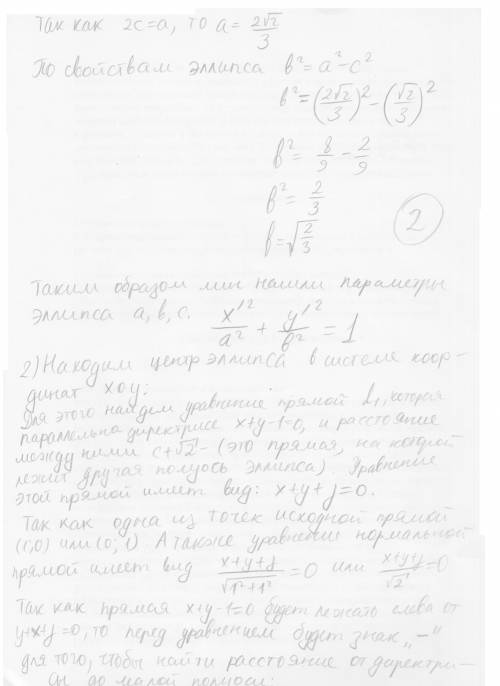 Так как 2c=a, то a = 2√2/3
По свойствам эллипса b²=a²-c²
b²=(2√2/3)²-(√2/3)²
b²= 8/9 - 2/9
b²= 2/3
b=√(2/3)
2
Таким образом мы нашли параметры
эллипса a, b, c. x'²/a² + y'²/b² = 1
2) Находим центр эллипса в системе коор-
динат xoy:
Для этого найдем уравнение прямой L1, которая
параллельна директрисе x+y-1=0, и расстояние
между ними c+√2 - (это прямая, на которой
лежит другая полуось эллипса). Уравнение
этой прямой имеет вид: x+y+j=0.
Так как одна из точек исходной прямой
(1;0) или (0;1) А также уравнение нормальной
прямой имеет вид (x+y+j)/√(1²+1²)=0 или (x+y+j)/√2=0
Так как прямая x+y-1=0 будет лежать слева от
y+x+j=0, то перед уравнением будет знак „-"
для того, чтобы найти расстояние от директри-
сы до малой полуоси: